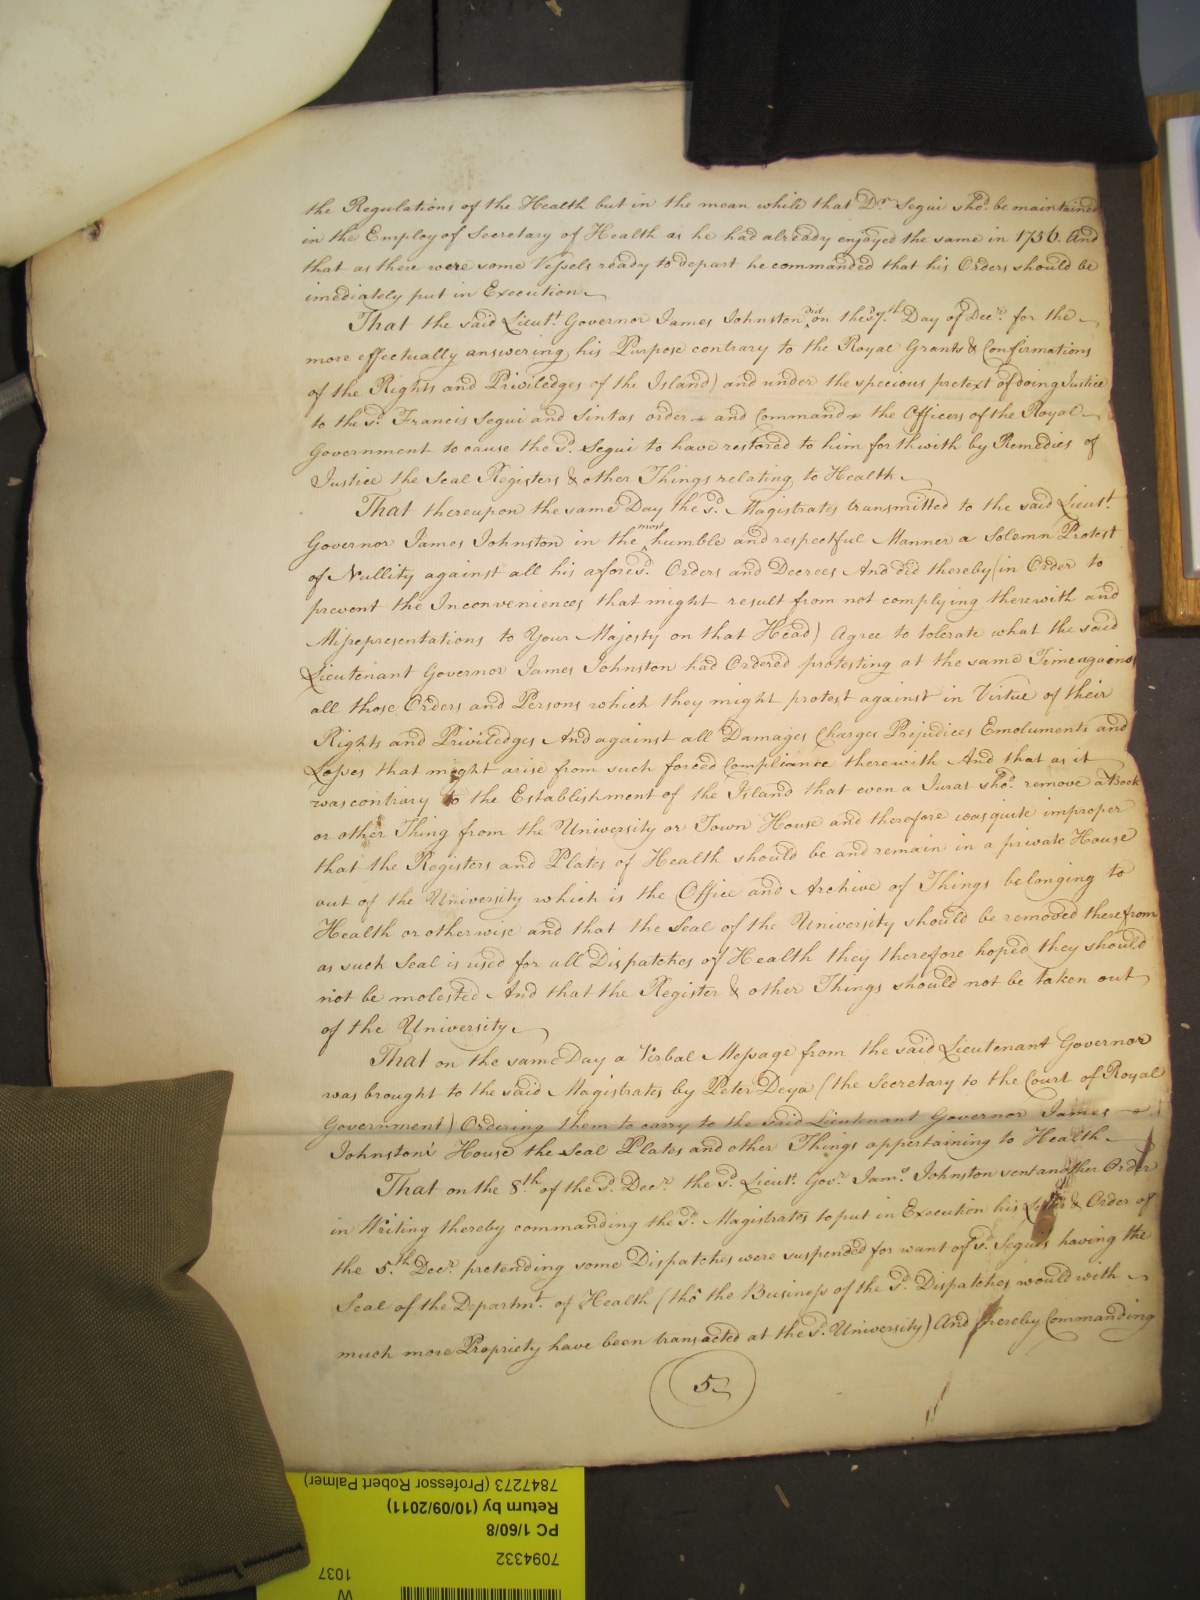 the Regulations of the Health but in the mean while that Dr. Segui shod. be maintained
in the Employ of Secretary of Health as he had already enjoyed the same in 1756. And
that as there were some Vessels ready to depart he commanded that his Orders should be
imediately put in Execution
That the said Lieut. Governor James Johnston did on the sd. 7th. Day of Decr. for the
more effectually answering his Purpose contrary to the Royal Grants & Confirmations
of the Rights and Priviledges of the Island) and under the specious pretext of doing Justice
to the sd. Francis Segui and Sintas order and Command the Officers of the Royal
Government to cause the sd. Segui to have restored to him forthwith by Remedies of
Justice the Seal Registers & other Things relating to Health
That thereupon the same Day the sd. Magistrates transmitted to the said Lieut.
Governor James Johnston in the most humble and respectful Manner a Solemn Protest
of Nullity against all his afores'd. Orders and Decrees And did thereby (in Order to
prevent the Inconveniences that might result from not complying therewith and
Misrepresentations to Your Majesty on that Head) Agree to tolerate what the said
Lieutenant Governor James Johnston had Ordered protesting at the same Time against
all those Orders and Persons which they might protest against in Virtue of their
Rights and Priviledges And against all Damages Charges Prejudices Emoluments and
Losses that might arise from such forced Compliance therewith And that as it
was contrary to the Establishment of the Island that even a Jurat shod. remove a Book
or other Thing from the University or Town House and therefore was quite improper
that the Registers and Plates of Health should be and remain in a private House
out of the University which is the Office and Archive of Things belonging to
Health or otherwise and that the Seal of the University should be removed therefrom
as such Seal is used for all Dispatches of Health they therefore hoped they should
not be molested And that the Register & other Things should not be taken out
of the University.
That on the same Day a Virbal Message from the said Lieutenant Governor
was brought to the said Magistrates by Peter Deya (the Secretary to the Court of Royal
Government) Ordering them to carry to the said Lieutenant Governor James
Johnston's House the Seal Plates and other Things appertaining to Health
That on the 8th. of the sd. Decr. the sd. Lieut. Govr. Jams. Johnston sent another Order
in Writing thereby commanding the sd. Magistrates to put in Execution his Letter & Order of
the 5th. Decr. pretending some Dispatches were suspended for want of sd. Segui's having the
Seal of the Departmt. of Health (tho' the Business of the sd. Dispatches would with
much more Propriety have been transacted at the sd. University) And thereby Commanding
5
7847273 (Professor Robert Palmer)
Return by (10/09/2011)
PC 1/60/8
7094332
1037
W